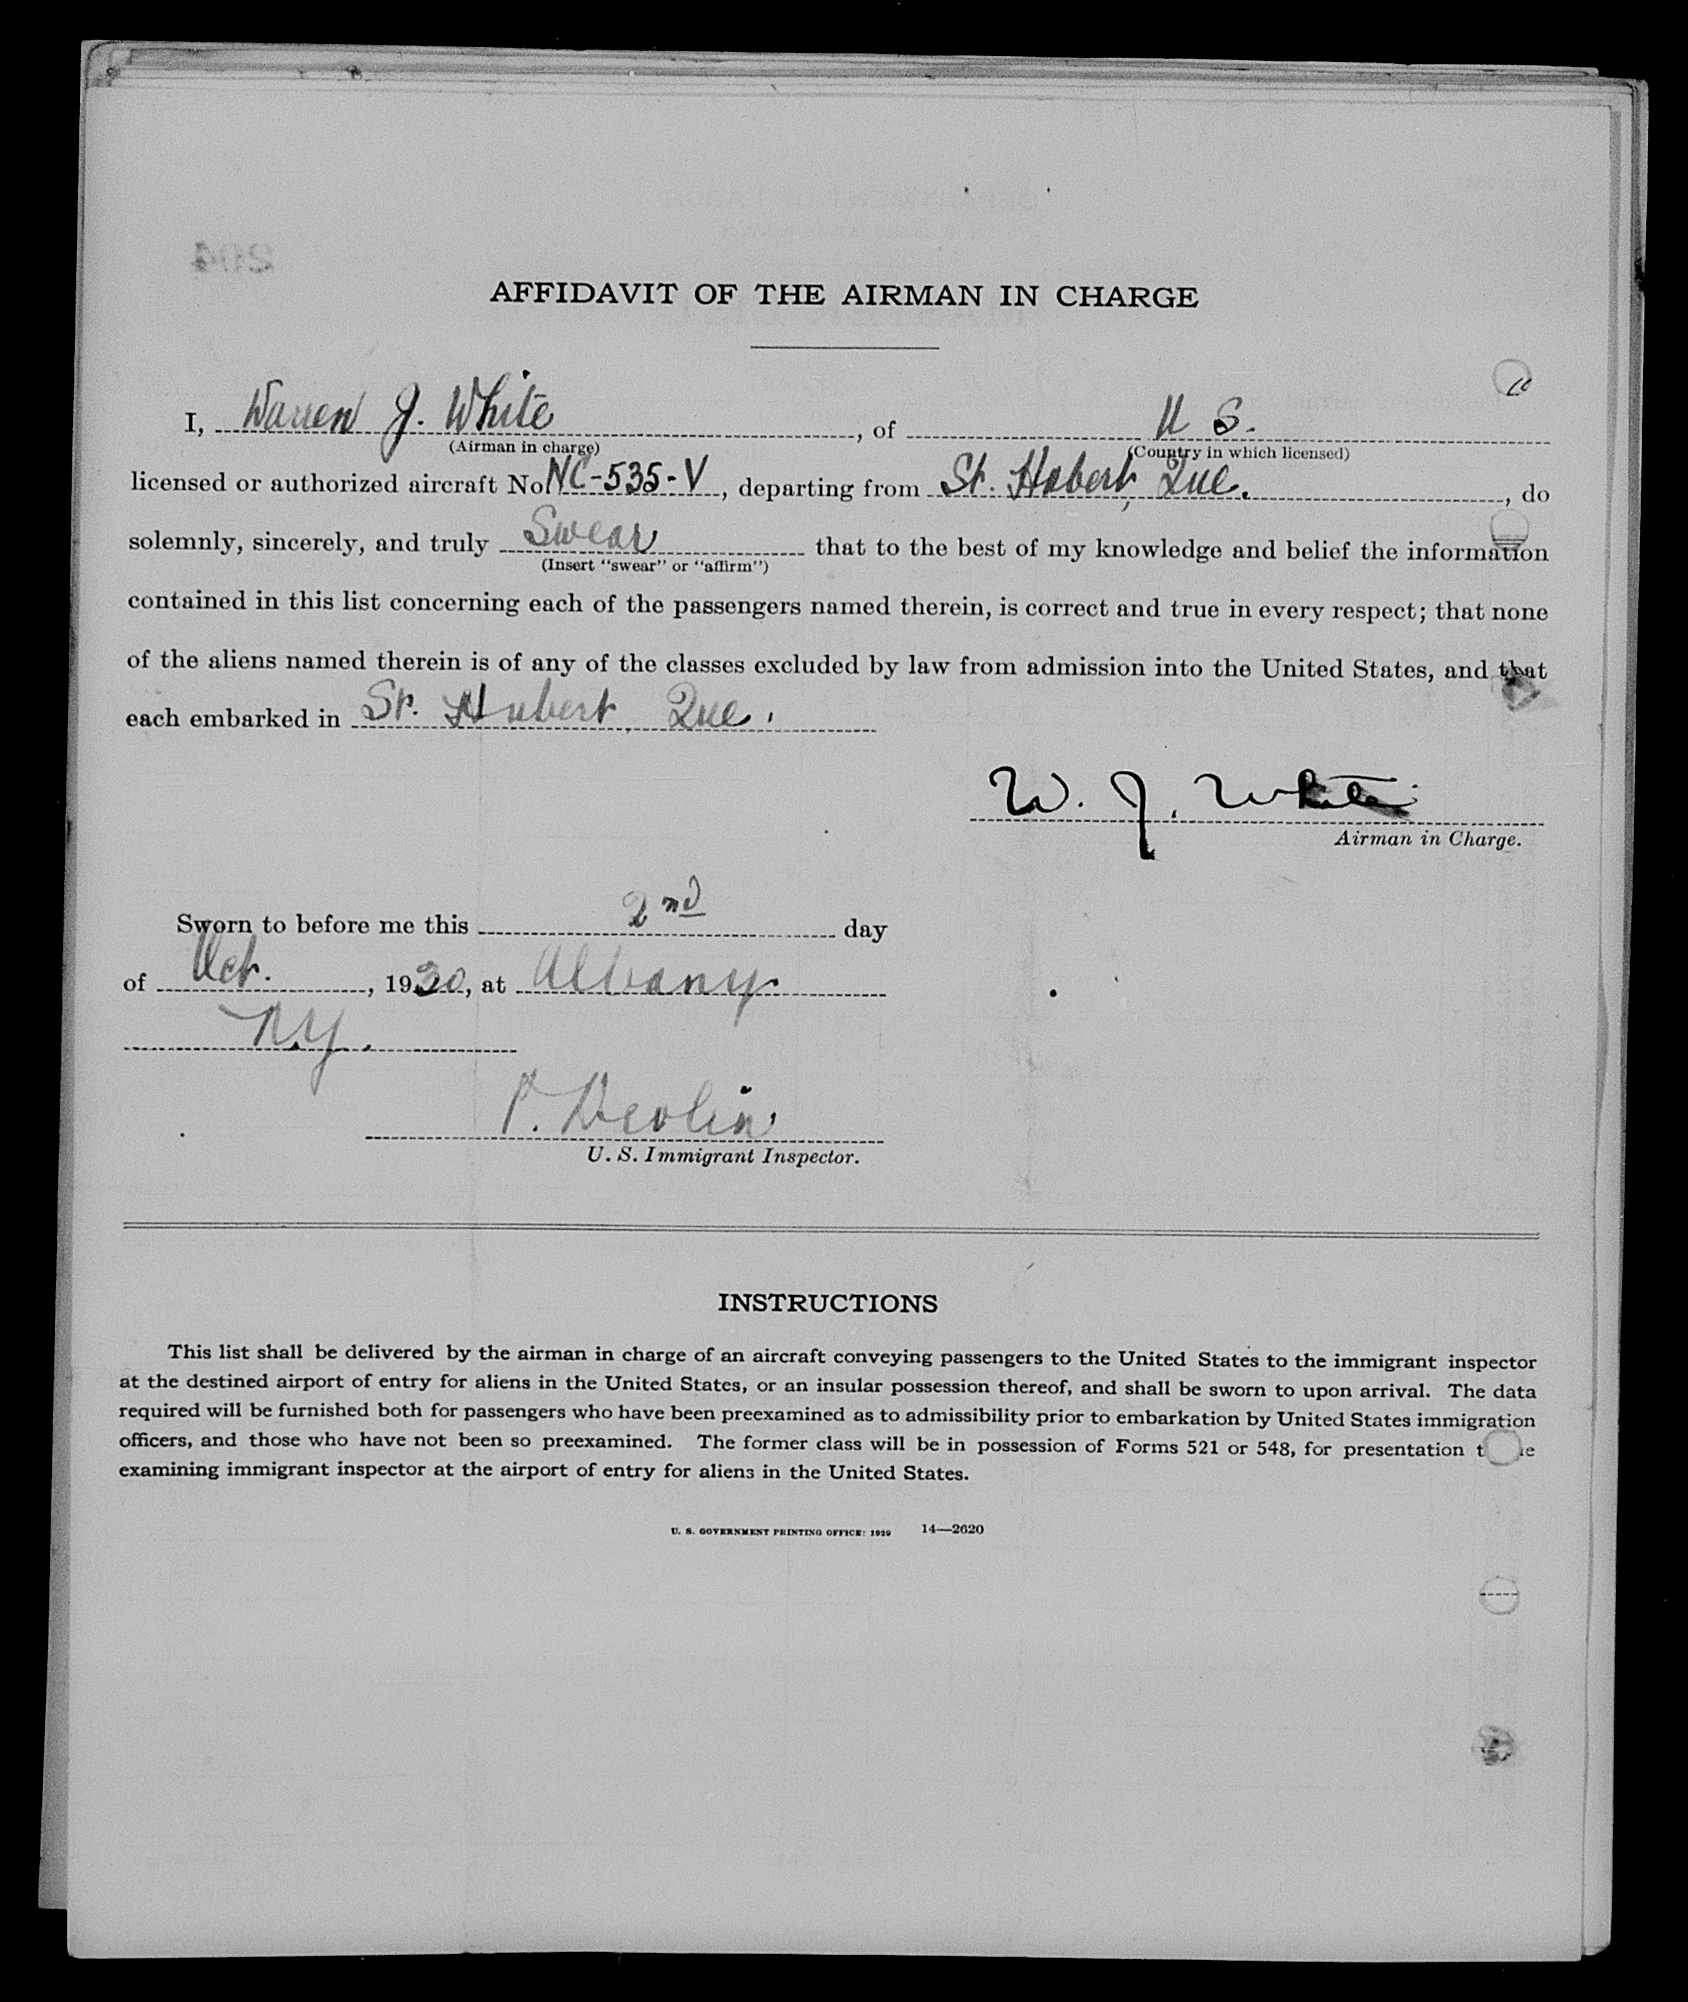 AFFIDAVIT OF THE AIRMAN IN CHARGE
I, Warren J. White, of U S.
(Airman in charge) (Country in which licensed)
licensed or authorized aircraft No NC-535-V, departing from St. Hubert, Que., do
solemnly, sincerely, and truly Swear that to the best of my knowledge and belief the information
(Insert "swear" or "affirm")
contained in this list concerning each of the passengers named therein, is correct and true in every respect; that none
of the aliens named therein is of any of the classes excluded by law from admission into the United States, and that
each embarked in St. Hubert, Que.
W. J. White
Airman in Charge.
Sworn to before me this 2nd day
of Oct., 1930, at Albany
N.Y.
P. Devlin
U. S. Immigrant Inspector.
INSTRUCTIONS
This list shall be delivered by the airman in charge of an aircraft conveying passengers to the United States to the immigrant inspector
at the destined airport of entry for aliens in the United States, or an insular possession thereof, and shall be sworn to upon arrival. The data
required will be furnished both for passengers who have been preexamined as to admissibility prior to embarkation by United States immigration
officers, and those who have not been so preexamined. The former class will be in possession of Forms 521 or 548, for presentation
examining immigrant inspector at the airport of entry for aliens in the United States.
U. S. GOVERNMENT PRINTING OFFICE: 1929 14—2620